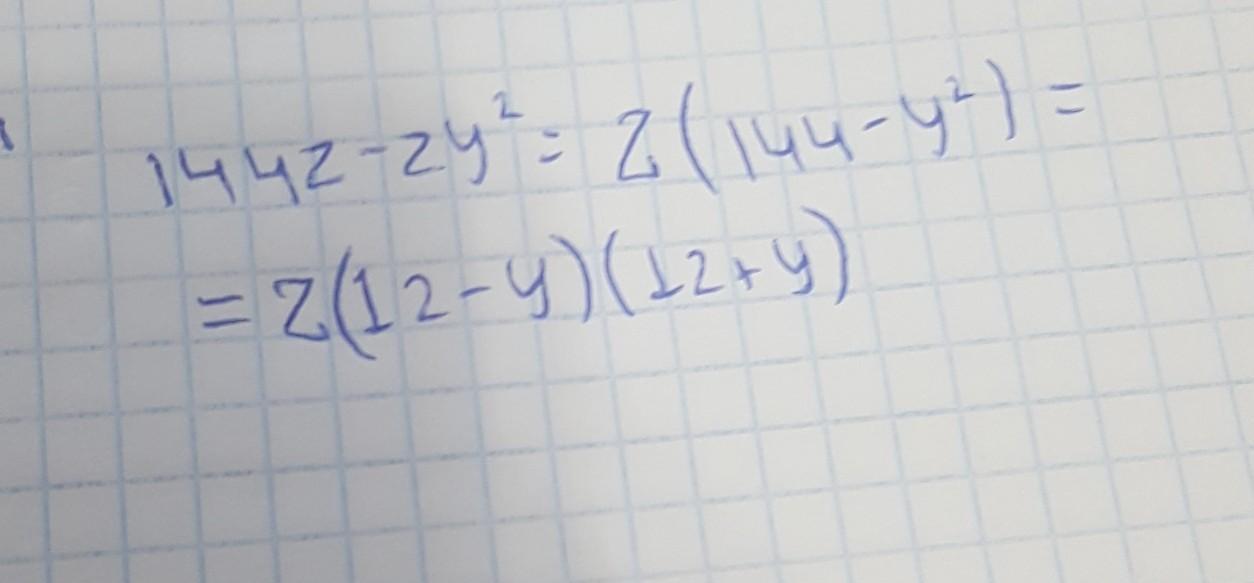 144z-zy²=z(144-y²)=
=z(12-y)(12+y)